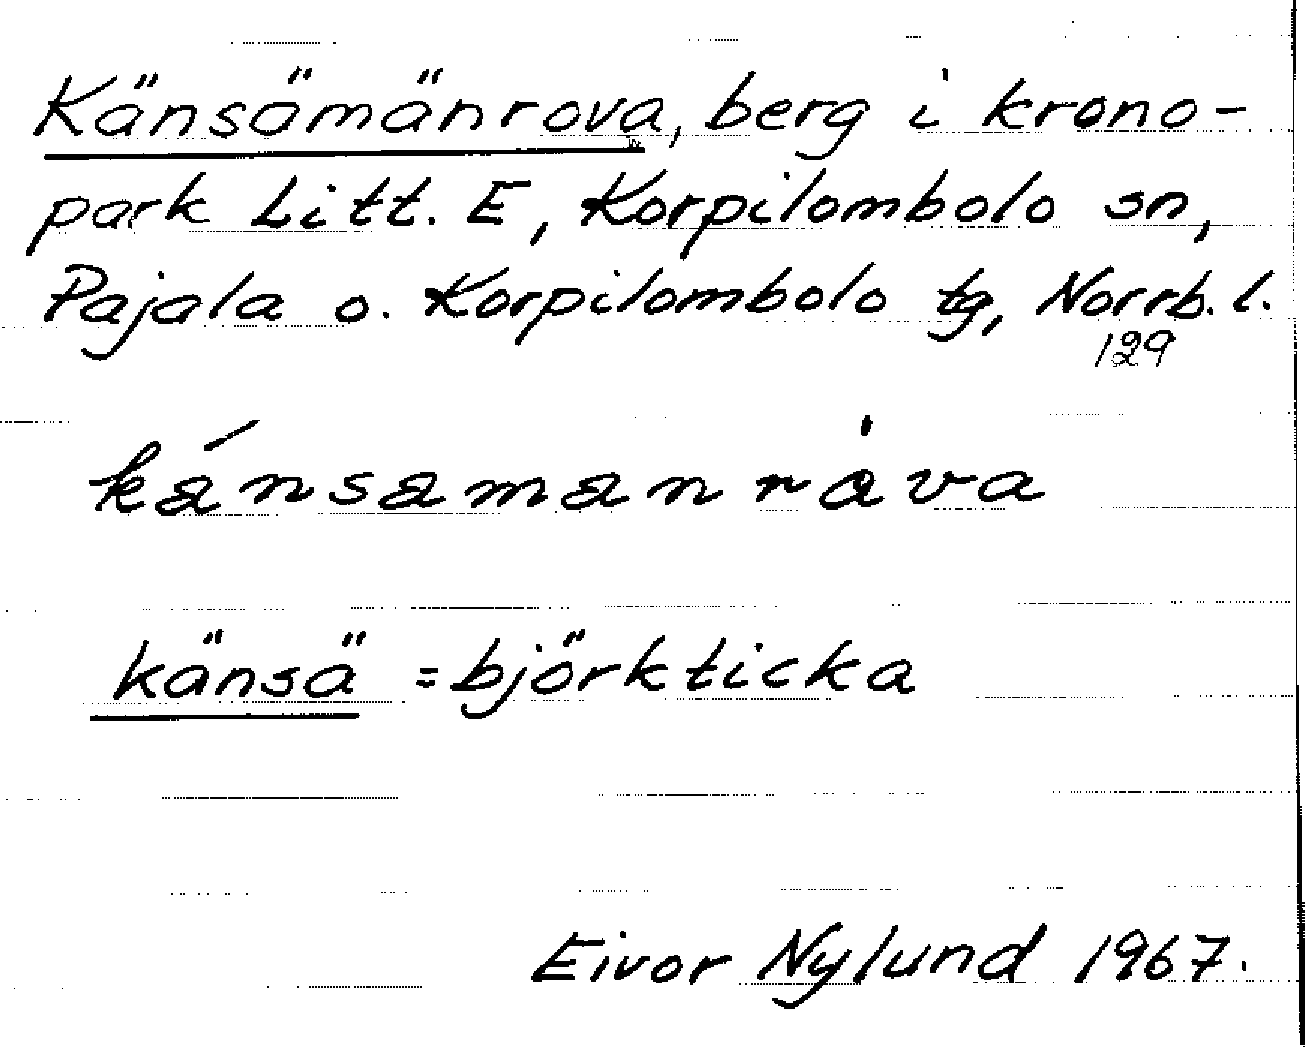 Känsämänrova, berg i krono-
park Litt. E, Korpilombolo sn,
Pajala o. Korpilombolo tg, Norrb. l.
129
känsä = björkticka
Eivor Nylund 1967.